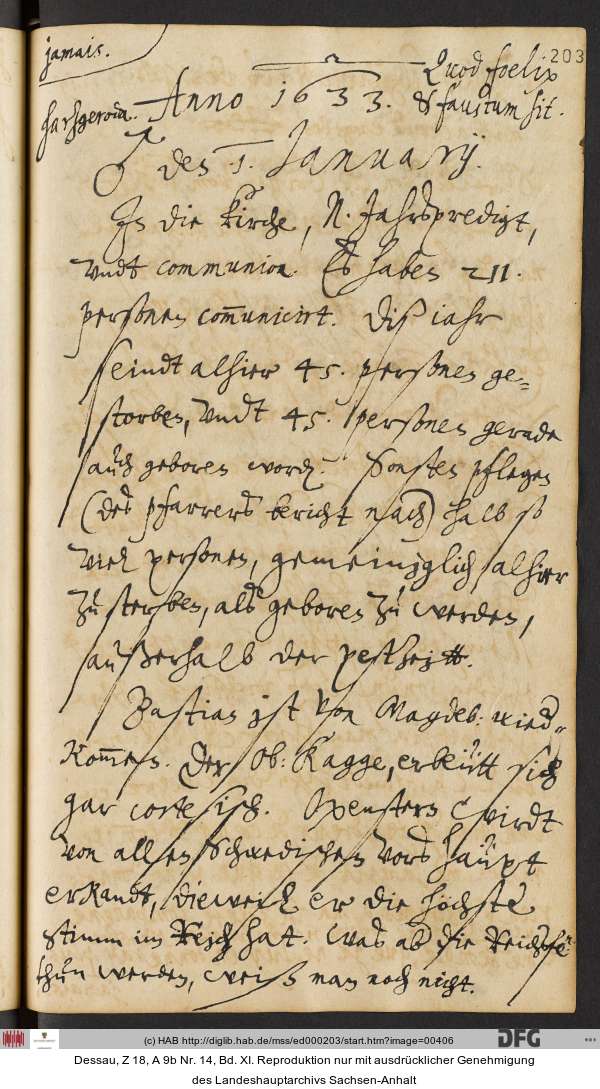 jamais.
203
Quod foelix
Anno 1633. & faustum sit.
harzgeroda.
♂ den 1. Januarij.
In die kirche, N. Jahrspredigt,
vndt communion. Es haben 211.
personen com̄unicirt. Diß iahr
seindt alhier 45. personen ge=
storben, vndt 45. personen gerade
auch geboren word[en]. Sonsten pflegen
(des pfarrers bericht nach) halb so
viel personen, gemeiniglich alhier
zu sterben, als geboren zu werden,
außerhalb der pestzeitt.
Bastian ist von Magdeb: wied=
kom̄en. Der Ob: Kagge, erbeutt sich
gar cortesisch. Oxenstern wirdt
von allen Schwedischen vors haüpt
erkandt, dieweil er die höchste
stimm im Reich hat. Was ab die Reichsste
thun werden, weiß man noch nicht.
(c) HAB http://diglib.hab.de/mss/ed000203/start.htm?image=00406
DFG
Dessau, Z 18, A 9b Nr. 14, Bd. XI. Reproduktion nur mit ausdrücklicher Genehmigung
des Landeshauptarchivs Sachsen-Anhalt